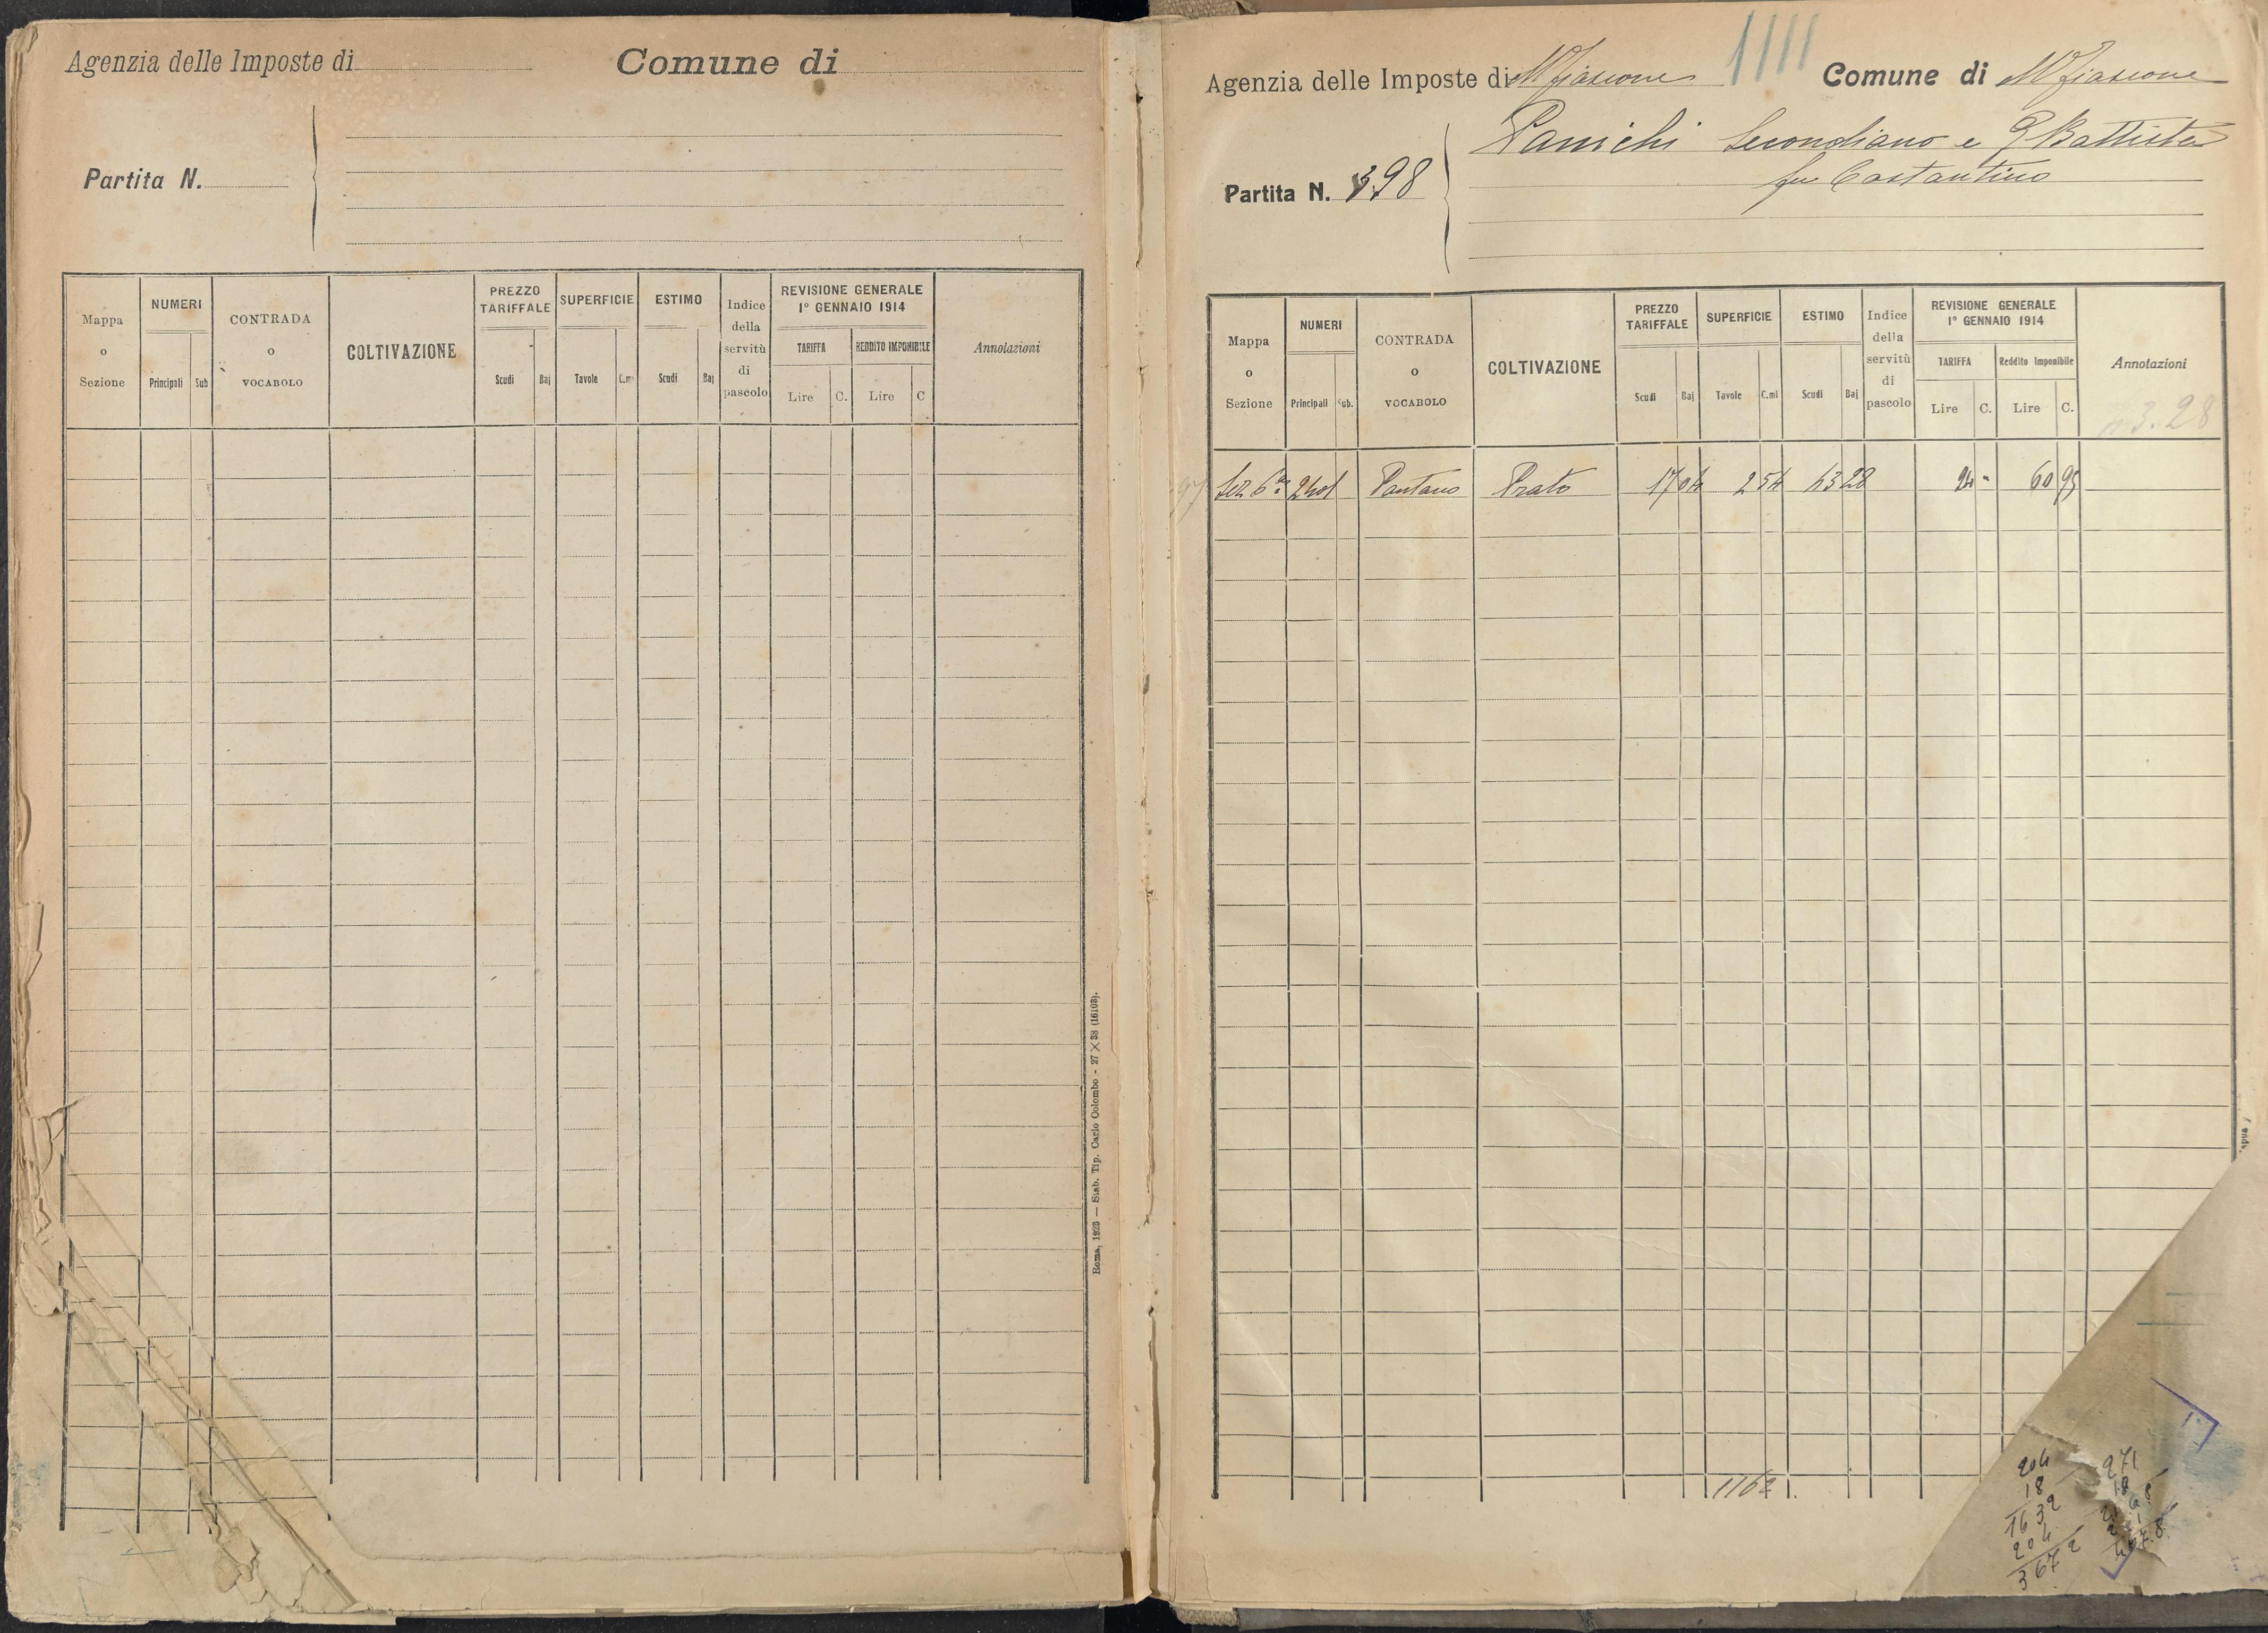 Agenzia delle Imposte di
Comune di
Partita N.
Mappa o Sezione
NUMERI
Principali
Sub
CONTRADA o VOCABOLO
COLTIVAZIONE
PREZZO TARIFFALE
Scudi
Baj
SUPERFICIE
Tavole
C.mi
ESTIMO
Scudi
Baj
Indice della servitù di pascolo
REVISIONE GENERALE
1° GENNAIO 1914
TARIFFA
Lire
C.
REDDITO IMPONIBILE
Lire
C
Annotazioni
Roma, 1923 — Stab. Tip. Carlo Colombo - 27 X 38 (16103).
Agenzia delle Imposte di Mfiascone
1111
Comune di Mfiascone
Partita N. 398
Panichi Secondiano e G Battista
fu Costantino
Mappa o Sezione
NUMERI
Principali
Sub.
CONTRADA o VOCABOLO
COLTIVAZIONE
PREZZO TARIFFALE
Scudi
Baj
SUPERFICIE
Tavole
C.mi
ESTIMO
Scudi
Baj
Indice della servitù di pascolo
REVISIONE GENERALE
1° GENNAIO 1914
TARIFFA
Lire
C.
Reddito Imponibile
Lire
C.
Annotazioni
3.28
Sez 6a 2401 Pantano Prato 17 04 2 54 43 28 24 - 60 95
1162
204
18
1632
204
3672
271
18